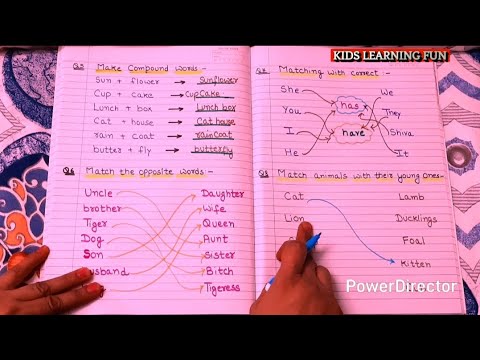 KIDS LEARNING FUN
Q5 Make Compound words :-
Sun + flower → Sunflower
Cup + cake → Cup Cake
Lunch + box → Lunch box
Cat + house → Cat house
rain + coat → rainCoat
butter + fly → butterfly
Q6 Match the opposite words :-
Uncle Daughter
brother Wife
Tiger Queen
Dog Aunt
Son Sister
husband Bitch
Tigeress
Matching with correct :-
She We
has
You They
I Shiva
have
He It
Match animals with their young ones-
Cat Lamb
Lion Ducklings
Foal
Kitten
PowerDirector